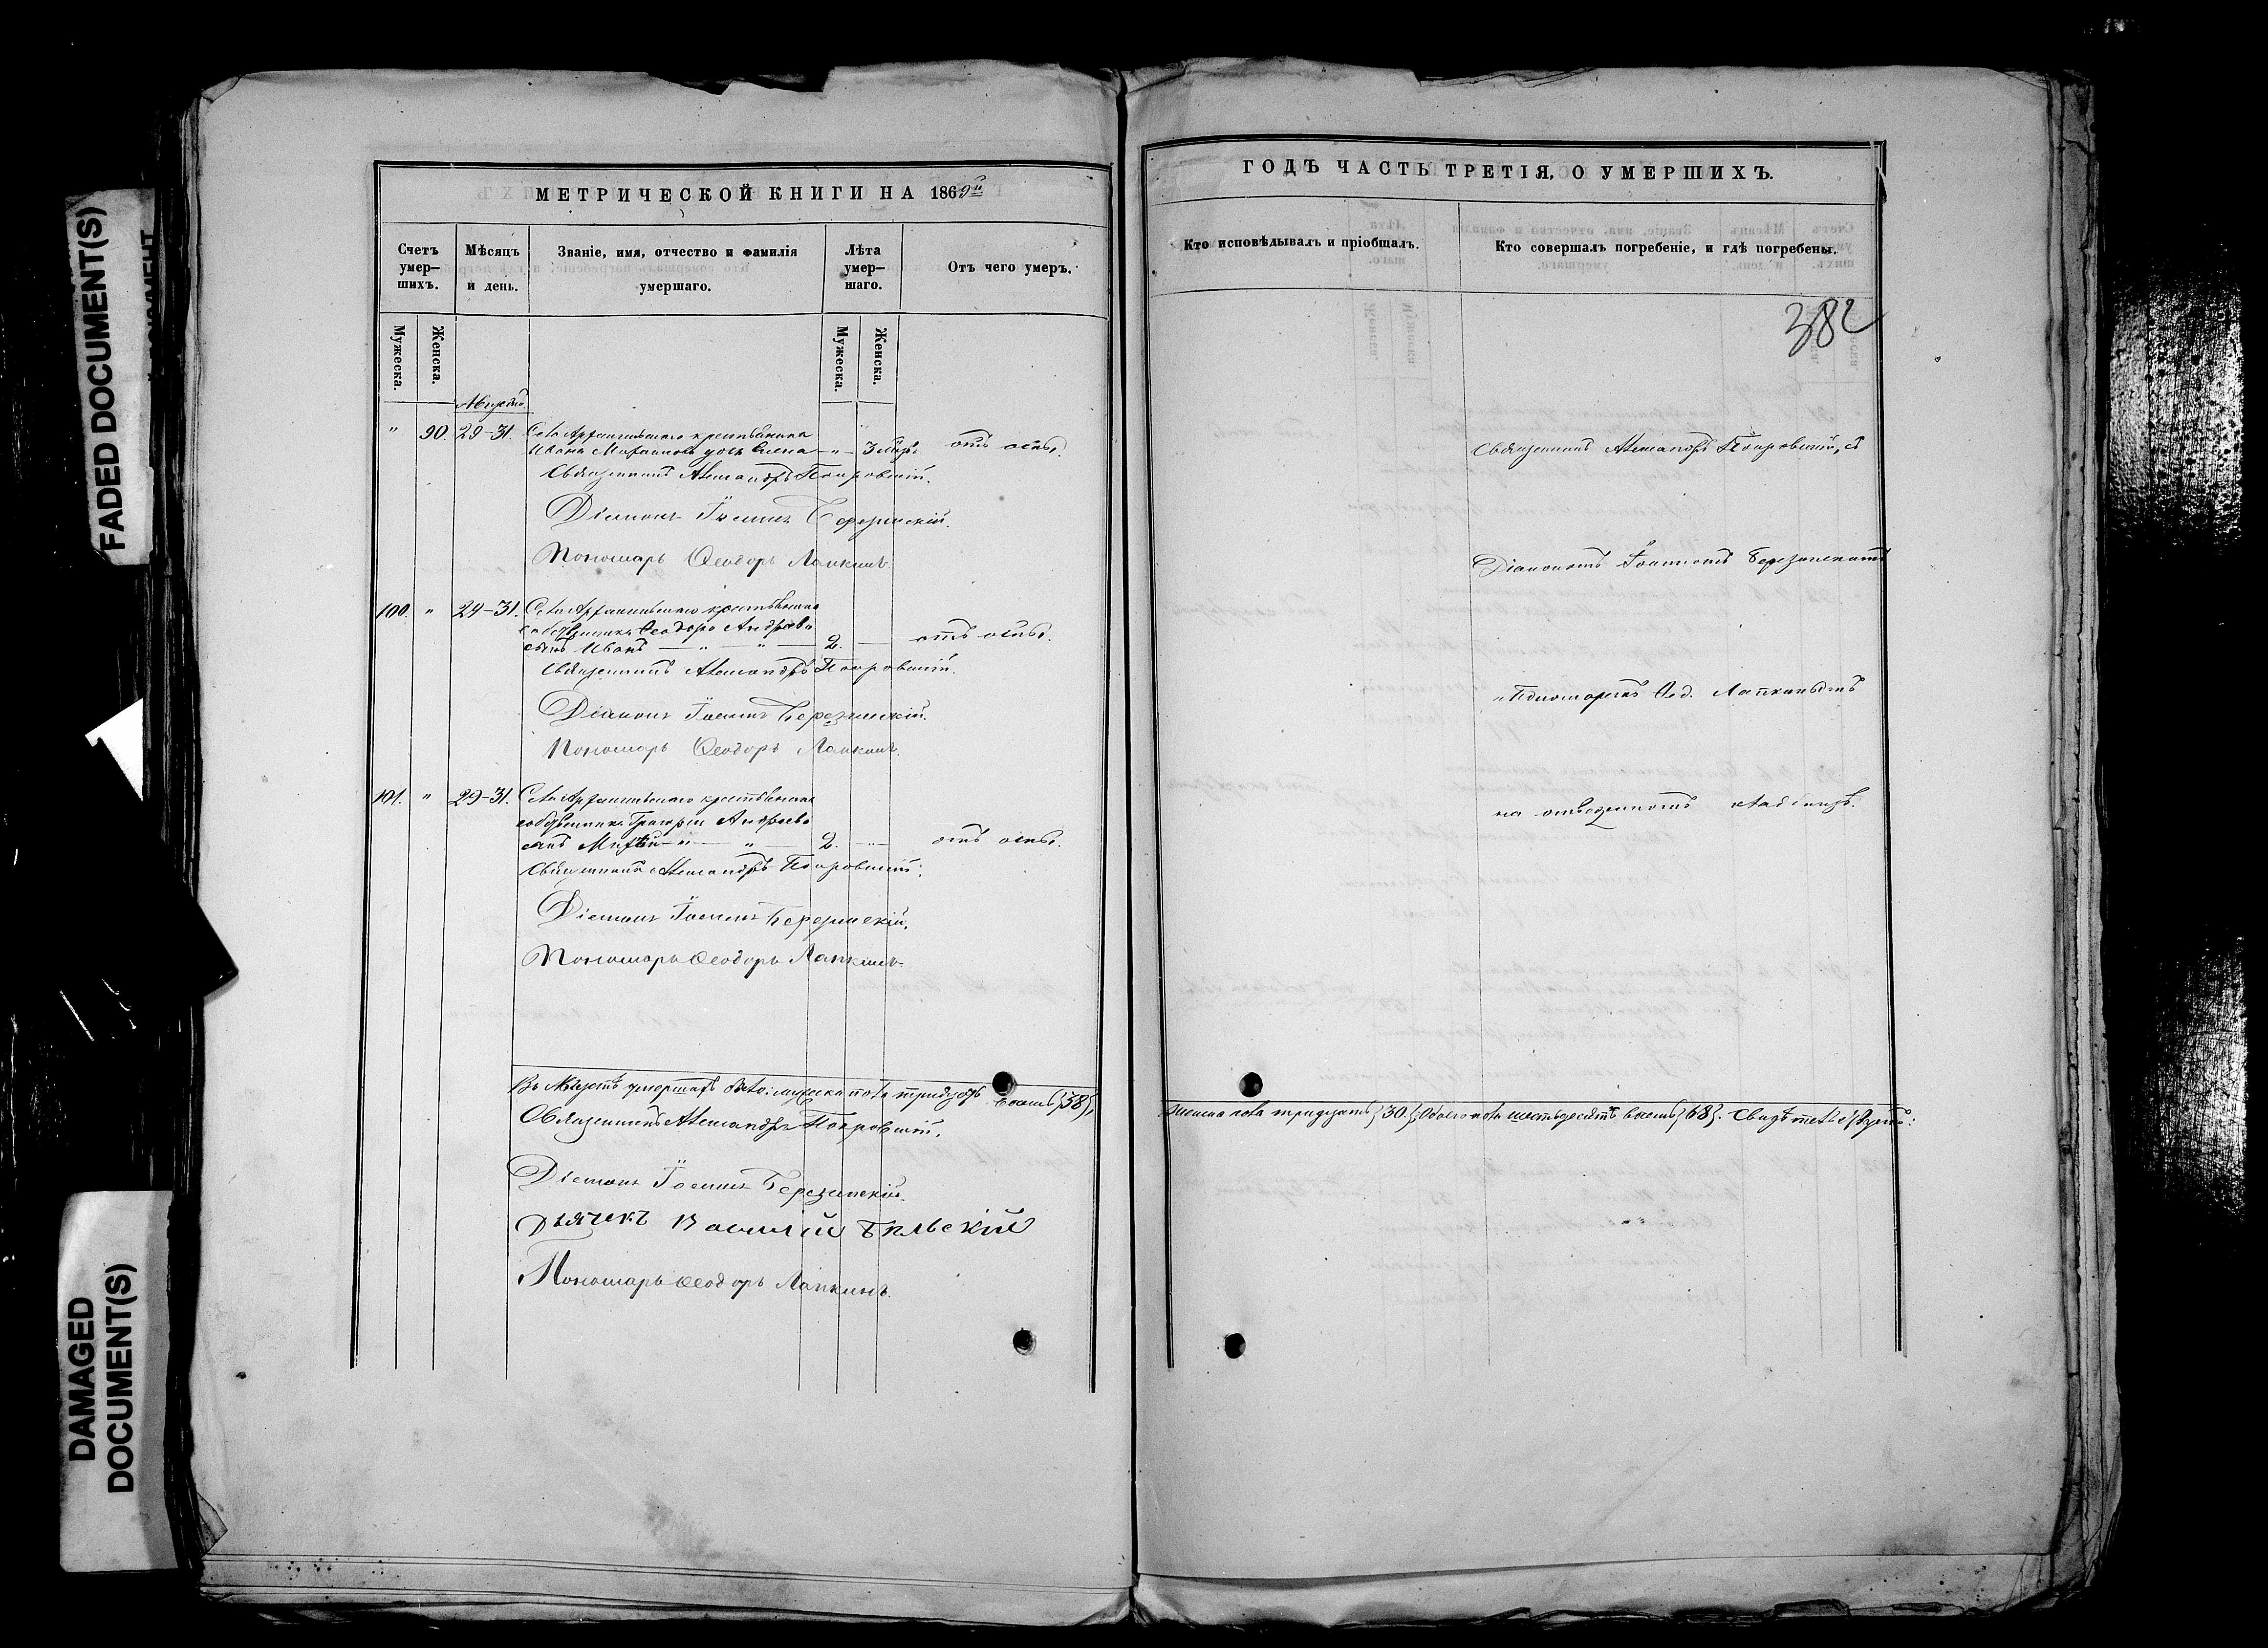 FADED DOCUMENT(S)
DAMAGED
DOCUMENT(S)
МЕТРИЧЕСКОЙ КНИГИ НА 1869й
Счетъ умер-шихъ.
Мѣсяцъ и день.
Званіе, имя, отчество и фамилія умершаго.
Лѣта умер-шаго.
Отъ чего умеръ.
Мужеска.
Женска.
Мужеска.
Женска.
Августъ
" 90. 29-31. Села Архангельскаго крестьянина
Ивана дочь Елена — " — 3 отъ оспы.
Священникъ Александръ Покровскій.
Діаконъ Іоаннъ Березинскій.
Пономарь Ѳеодоръ Лапкинъ.
100. " 24-31. Села Архангельскаго крестьянина
собственника Ѳеодора Андреева
сынъ Иванъ — " — " — 2. — отъ оспы.
Священникъ Александръ Покровскій.
Діаконъ Іоаннъ Березинскій.
Пономарь Ѳеодоръ Лапкинъ.
101. " 29-31. Села Архангельскаго крестьянина
собственника Григорія Андреева
сынъ — " — " — 2. — " — отъ оспы.
Священникъ Александръ Покровскій.
Діаконъ Іоаннъ Березинскій.
Пономарь Ѳеодоръ Лапкинъ.
Въ Августѣ умершихъ было: мужска пола тридцать восемь {38},
Священникъ Александръ Покровскій.
Діаконъ Іоаннъ Березинскій.
Дьячекъ Василій Бѣльскій
Пономарь Ѳеодоръ Лапкинъ.
ГОДЪ ЧАСТЬ ТРЕТІЯ, О УМЕРШИХЪ.
Кто исповѣдывалъ и пріобщалъ.
Кто совершалъ погребеніе, и гдѣ погребены.
382
Священникъ Александръ Покровскій, съ
Діакономъ Іоанномъ Березинскимъ
и Пономаремъ Ѳеод. Лапкинымъ
на отведенномъ кладбищѣ.
женска пола тридцать {30}. Обоего пола шестьдесятъ восемь {68}.